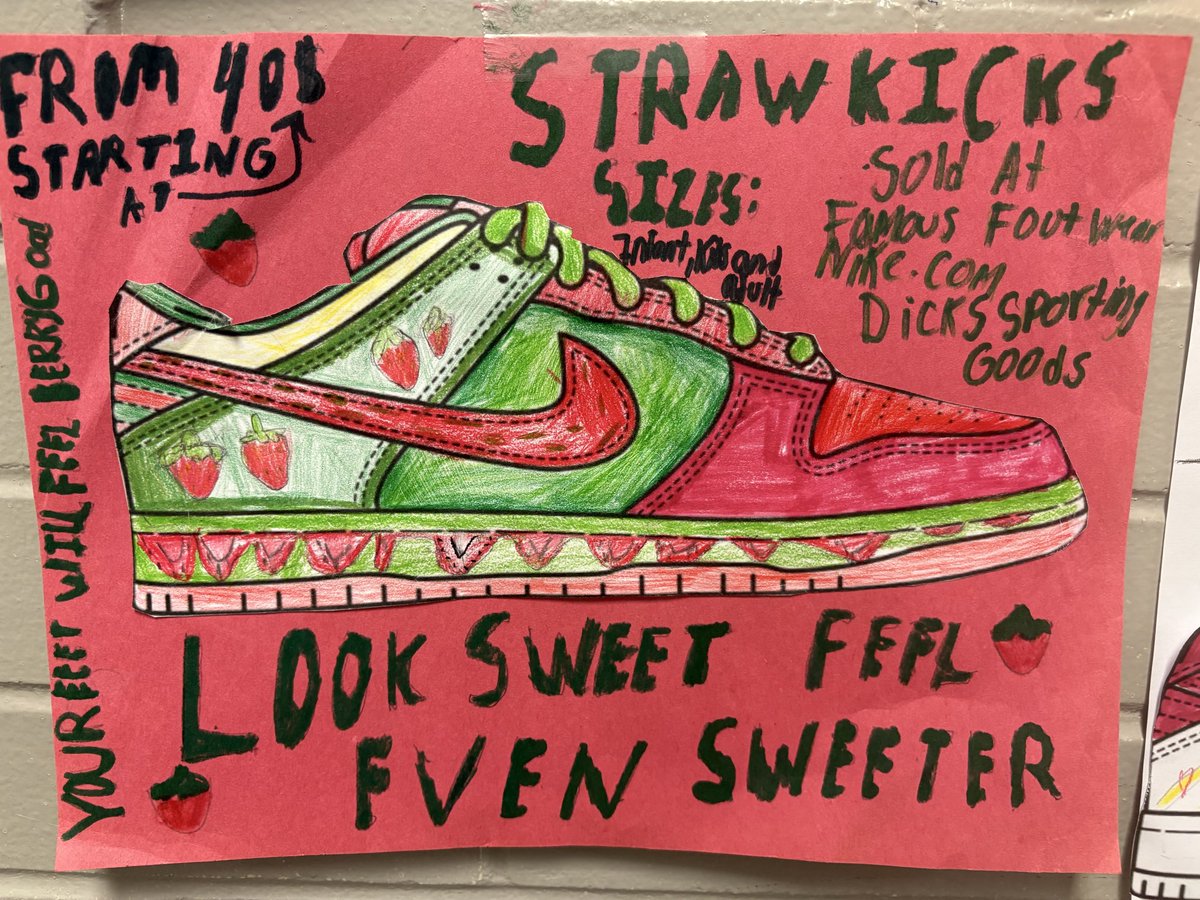 FROM 40$
STARTING
AT
STRAWKICKS
SIZES:
Infant, Kids and
Adult
Sold At
Famous Footwear
Nike.com
Dicks Sporting
Goods
YOUR FEET WILL FEEL BERRY Good
LOOK SWEET FEEL
EVEN SWEETER